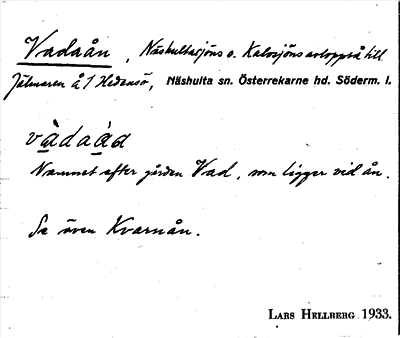 Vadaån, Näshultasjöns o. Kalvsjöns avlopps å till
Hjälmaren å / Hedensö, Näshulta sn. Österrekarne hd. Söderm. l.
vàdaàd
Namnet efter gården Vad, som ligger vid ån.
Se även Kvarnån.
LARS HELLBERG 1933.